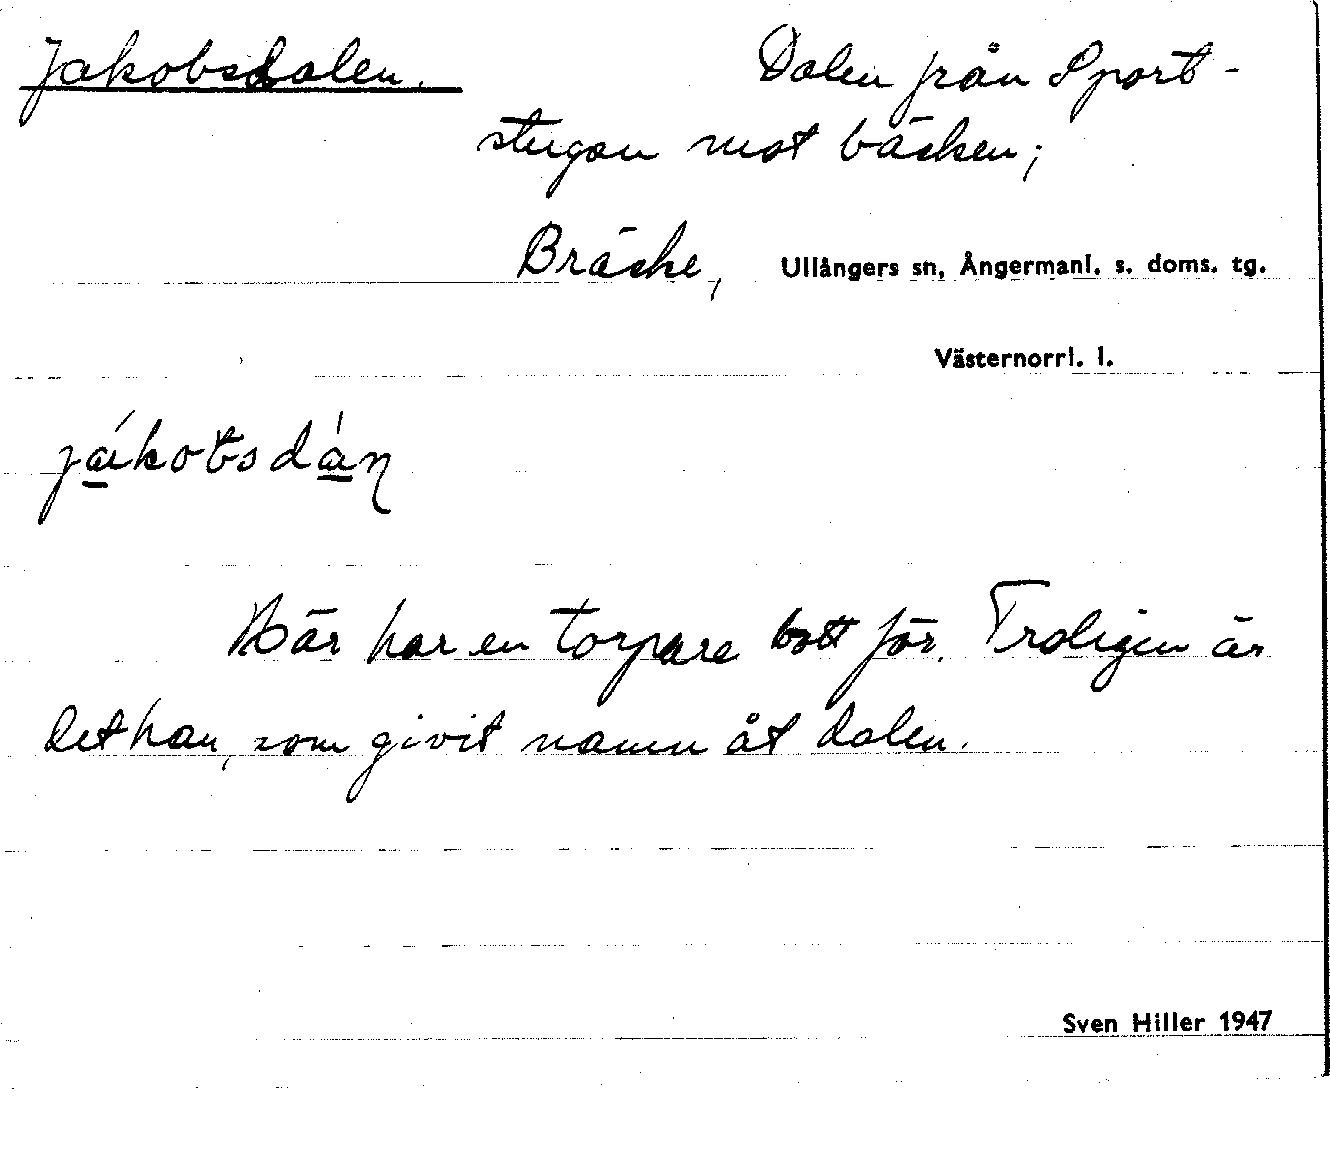 Jakobsdalen. Dalen från Sport-
stugan mot bäcken;
Bräcke, Ullångers sn, Ångermanl. s. doms. tg.
Västernorrl. l.
Här har en torpare bott förr. Troligen är
det han, som givit namn åt dalen.
Sven Hiller 1947